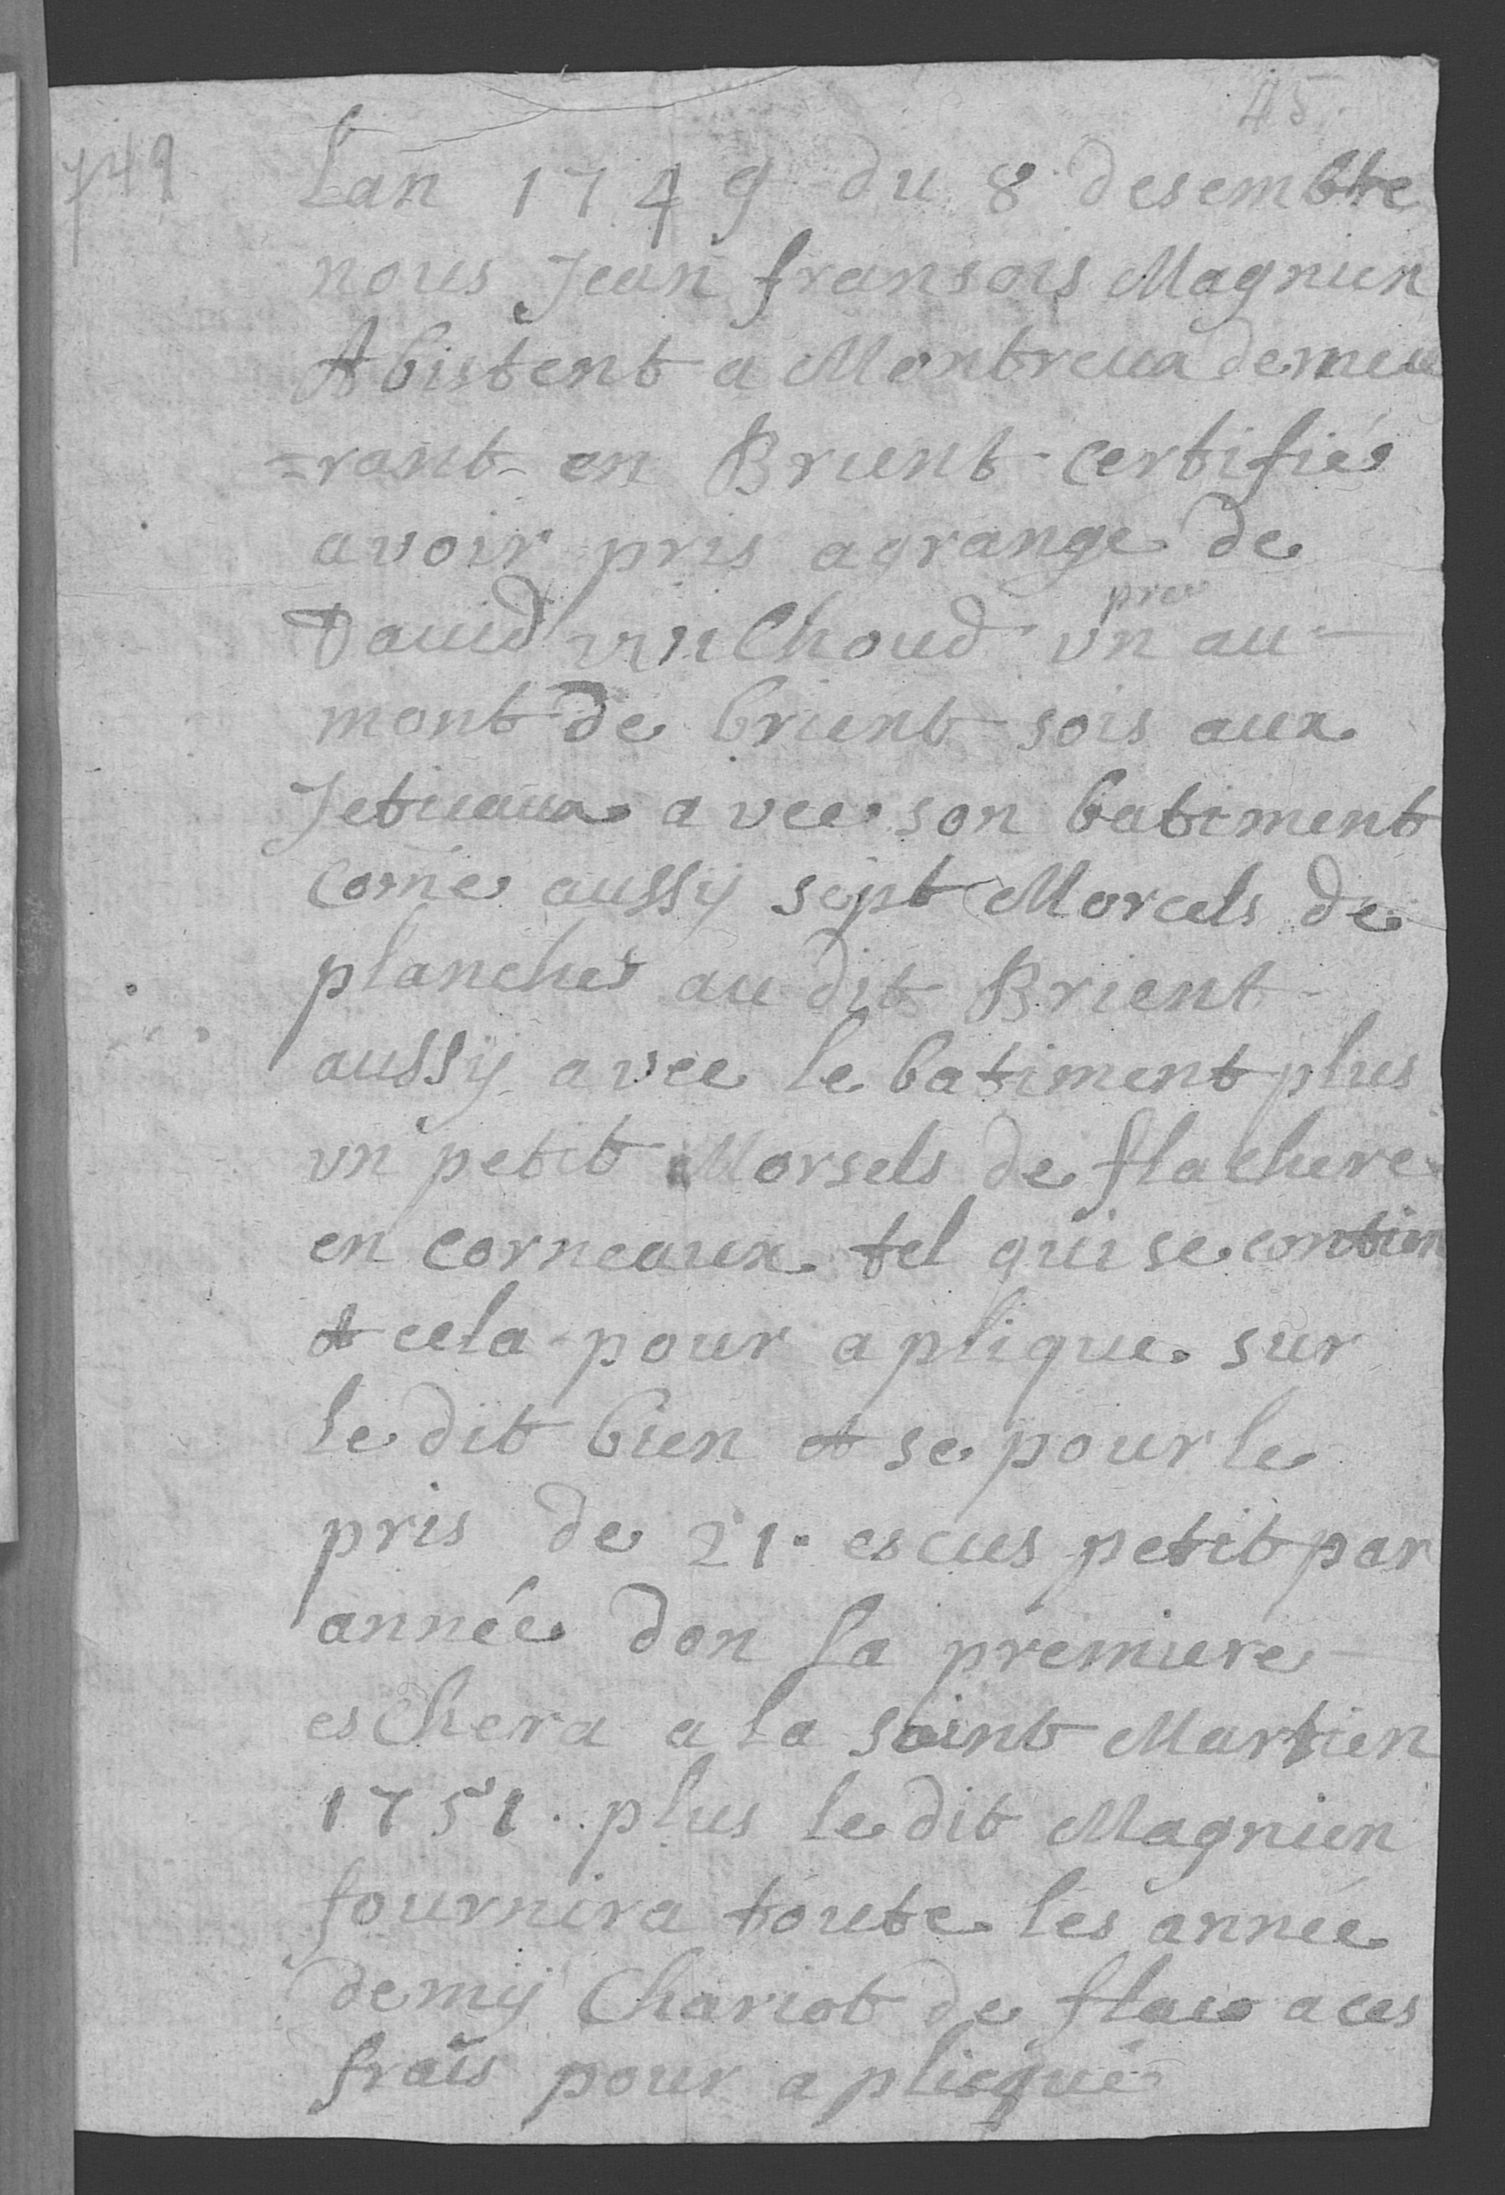 45
749
Lan 1749 du 8 desembre
nous Jean fransois Magnien
Abistent a Montreux demeu
=rant en Brient certifiés
avoir pris agrange de
pre
David Michoud un au
mont de brient sois aux
avec son batiment
come aussy sept Morcels de
planches au dit Brient
aussy avec le batiment plus
un petit Morsels de flachere
en corneaux tel qui se contien
& cela pour aplique sur
le dit bien & se pour le
pris de 21 escus petit par
année don la premiere
eschera a la saint Martien
1751. plus le dit Magnien
fournira toute les année
demy Chariot de a ces
frais pour aplicqué